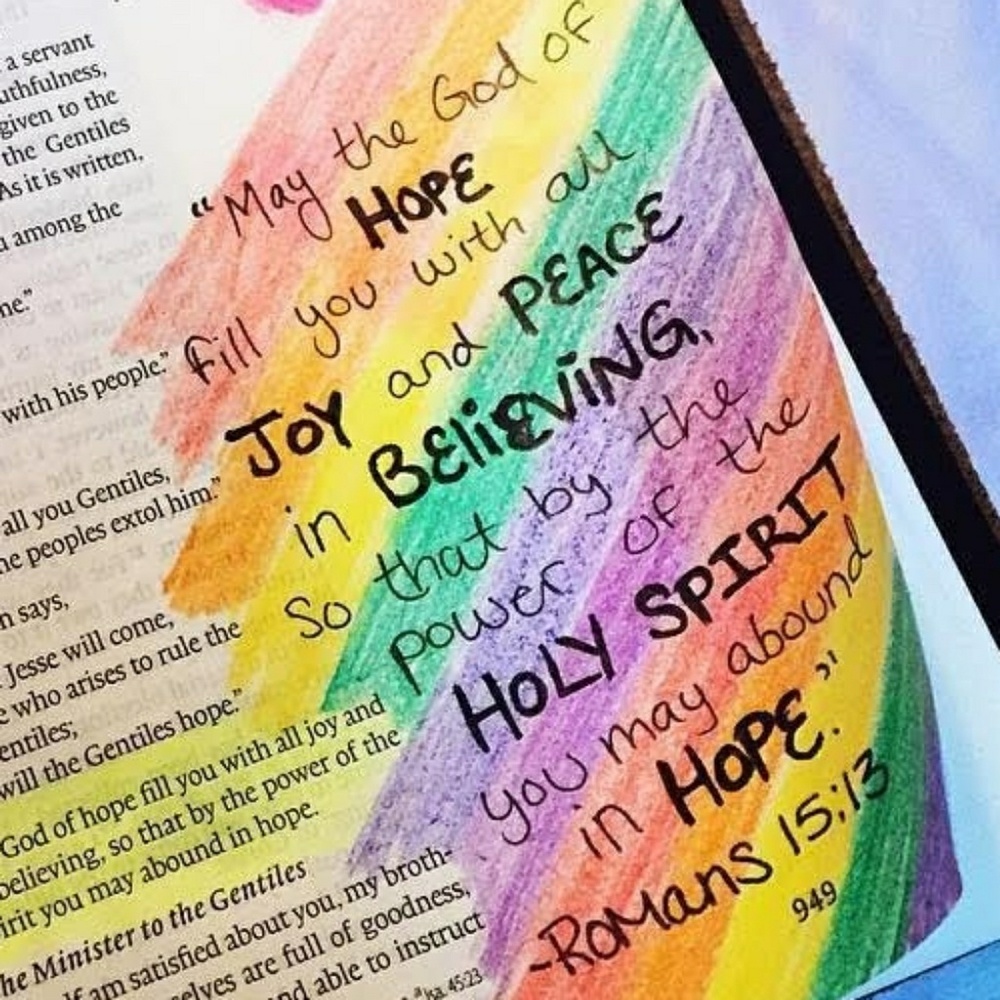 a servant
uthfulness,
given to the
the Gentiles
As it is written,
among the
me."
with his people."
all you Gentiles,
he peoples extol him."
n says,
Jesse will come,
who arises to rule the
entiles;
will the Gentiles hope."
God of hope fill you with all joy and
believing, so that by the power of the
irit you may abound in hope.
he Minister to the Gentiles
lf am satisfied about you, my broth-
selves are full of goodness,
nd able to instruct
Isa. 45:23
"May the God of
HOPE
fill you with all
JOY and PEACE
in BELiEViNG,
so that by the
power of the
HOLY SPIRIT
you may abound
in HOPE."
-Romans 15:13
949